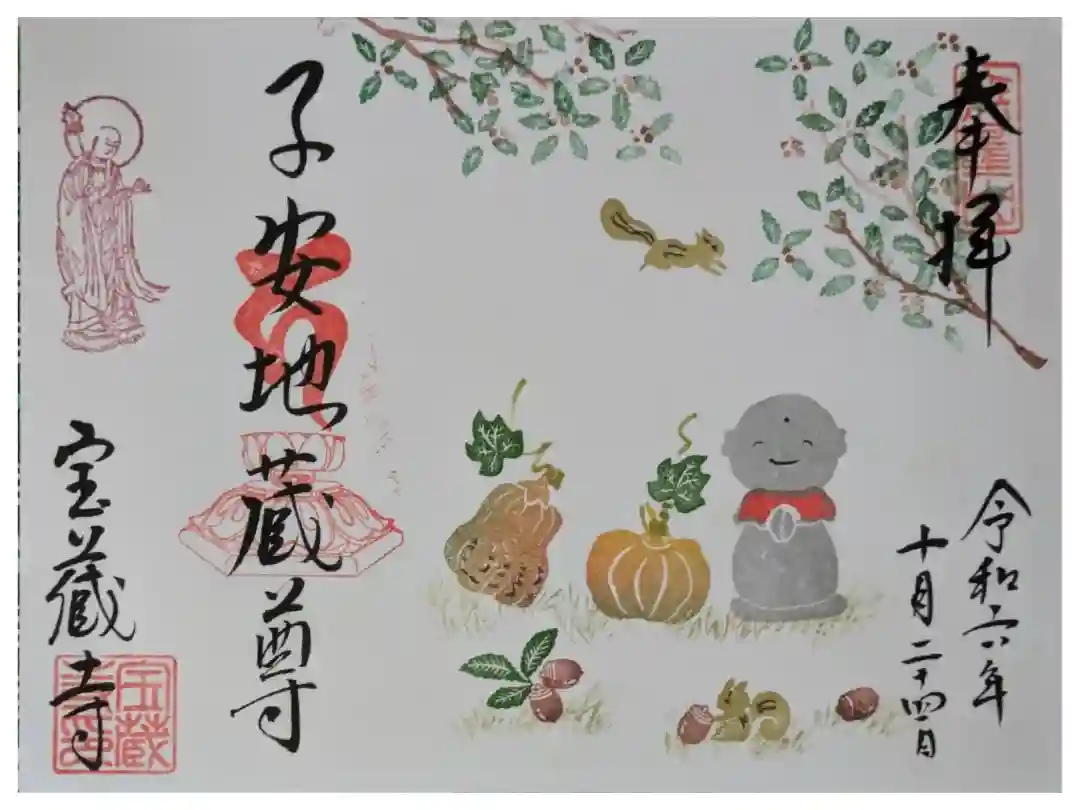 奉拝
令和六年
十月二十四日
子安地蔵尊
宝蔵寺